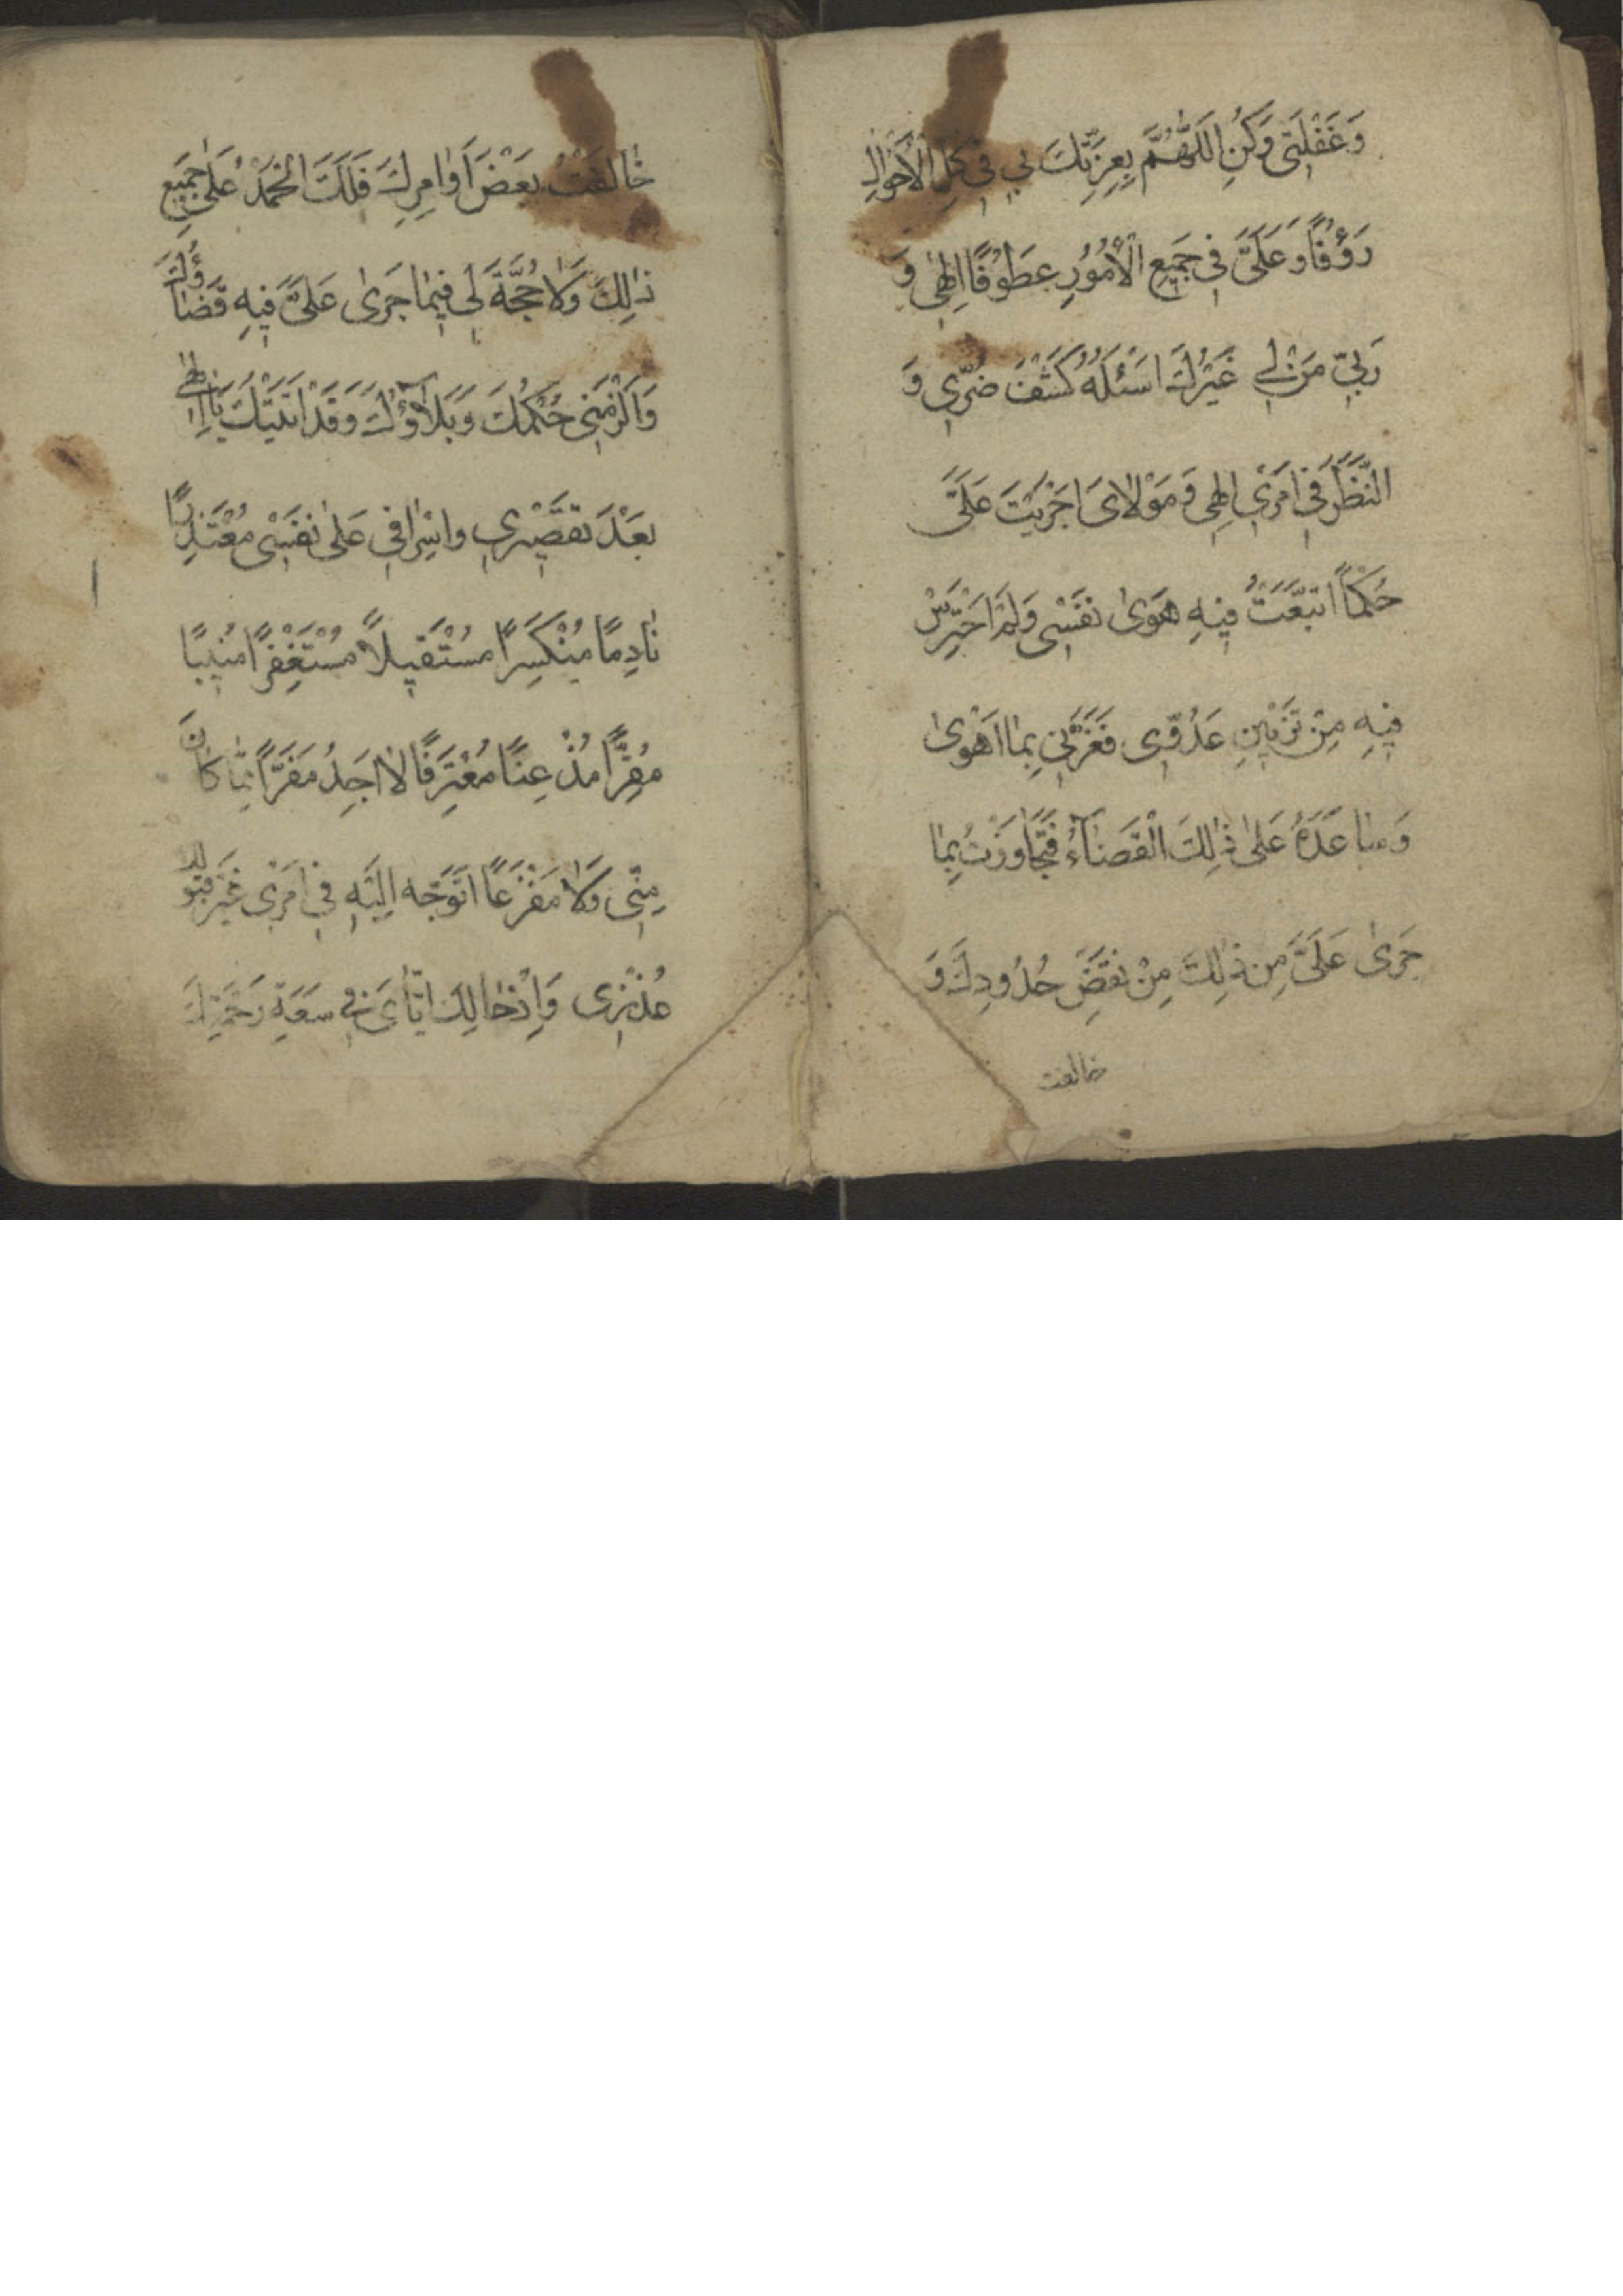 وَغَفْلَتِی وَكُنِ اللّٰهُمَّ بِعِزَّتِكَ لِی فِی كُلِّ الْاَحْوٰالِ
رَؤُفًا وَعَلَیَّ فِی جَمِیعِ الْاُمُوُرِ عَطُوْفًا اِلٰهِی وَ
رَبِّی مَنْ لِی غَیْرُكَ اَسْئَلُهُ كَشْفَ ضُرِّی وَ
النَّظَرَ فِی اَمْرِی اِلٰهِی وَ مَوْلٰایَ اَجْرَیْتَ عَلَیَّ
حُكْمًا اتَّبَعْتُ فِیهِ هَوٰی نَفْسِی وَلَمْ اَحْتَرِسْ
فِیهِ مِنْ تَزْیِینِ عَدُوِّی فَغَرَّنِی بِمٰا اَهْوٰی
وَ سٰاعَدَهُ عَلیٰ ذٰلِكَ الْقَضٰآءُ فَتَجٰاوَزْتُ بِمٰا
جَرٰی عَلَیَّ مِنْ ذٰلِكَ مِنْ نَقْضِ حُدُودِكَ وَ
خالفت
خٰالَفْتُ بَعْضَ اَوٰامِرِكَ فَلَكَ الْحَمْدُ عَلیٰ جَمِیعِ
ذٰلِكَ وَلٰا حُجَّةَ لِی فِیمٰا جَرٰی عَلَیَّ فِیهِ قَضٰاؤُكَ
وَاَلْزَمَنِی حُكْمُكَ وَبَلٰآؤُكَ وَقَدْ اَتَیْتُكَ یٰا اِلٰهِی
بَعْدَ تَقْصِیْرِی وَاِسْرٰافِی عَلیٰ نَفْسِی مُعْتَذِرًا
نٰادِمًا مُنْكَسِرًا مُسْتَقِیلًا مُسْتَغْفِرًا مُنِیبًا
مُقِرًّا مُذْعِنًا مُعْتَرِفًا لٰا اَجِدُ مَفَرًّا مِمّٰا كٰانَ
مِنِّی وَلٰا مَفْزَعًا اَتَوَجَّهُ اِلَیْهِ فِی اَمْرِی غَیْرَ قَبُولِكَ
عُذْرِی وَاِدْخٰالِكَ اِیّٰایَ فِی سَعَةِ رَحْمَتِكَ